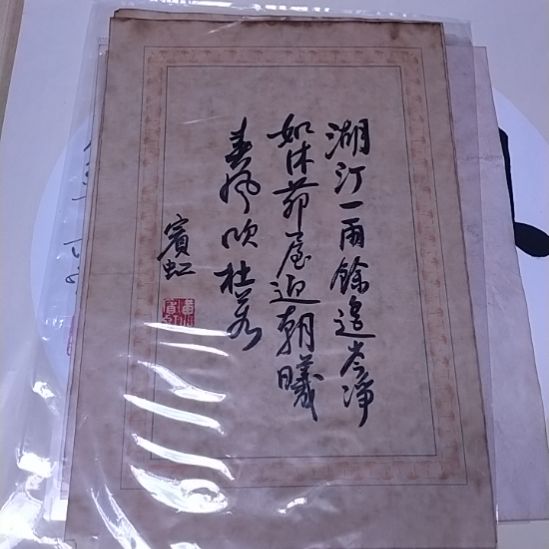 湖汀一雨餘遙岑淨
如沐茆屋迎朝曦
春風吹杜若
賓虹